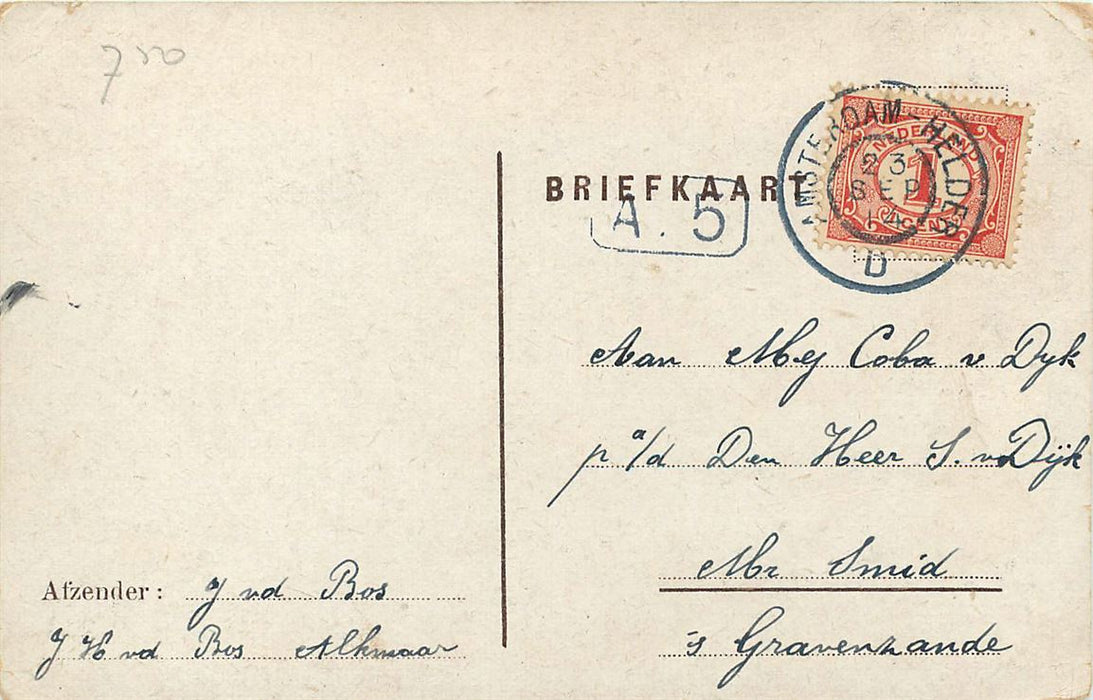 750
BRIEFKAART
A. 5
AMSTERDAM-HELDER
23
SEP
14
D
NEDERLAND
1
CENT
Aan Mej Coba v Dyk
p a/d Den Heer S. v Dijk
Mr Smid
's Gravenzande
Afzender: J vd Bos
J H vd Bos Alkmaar